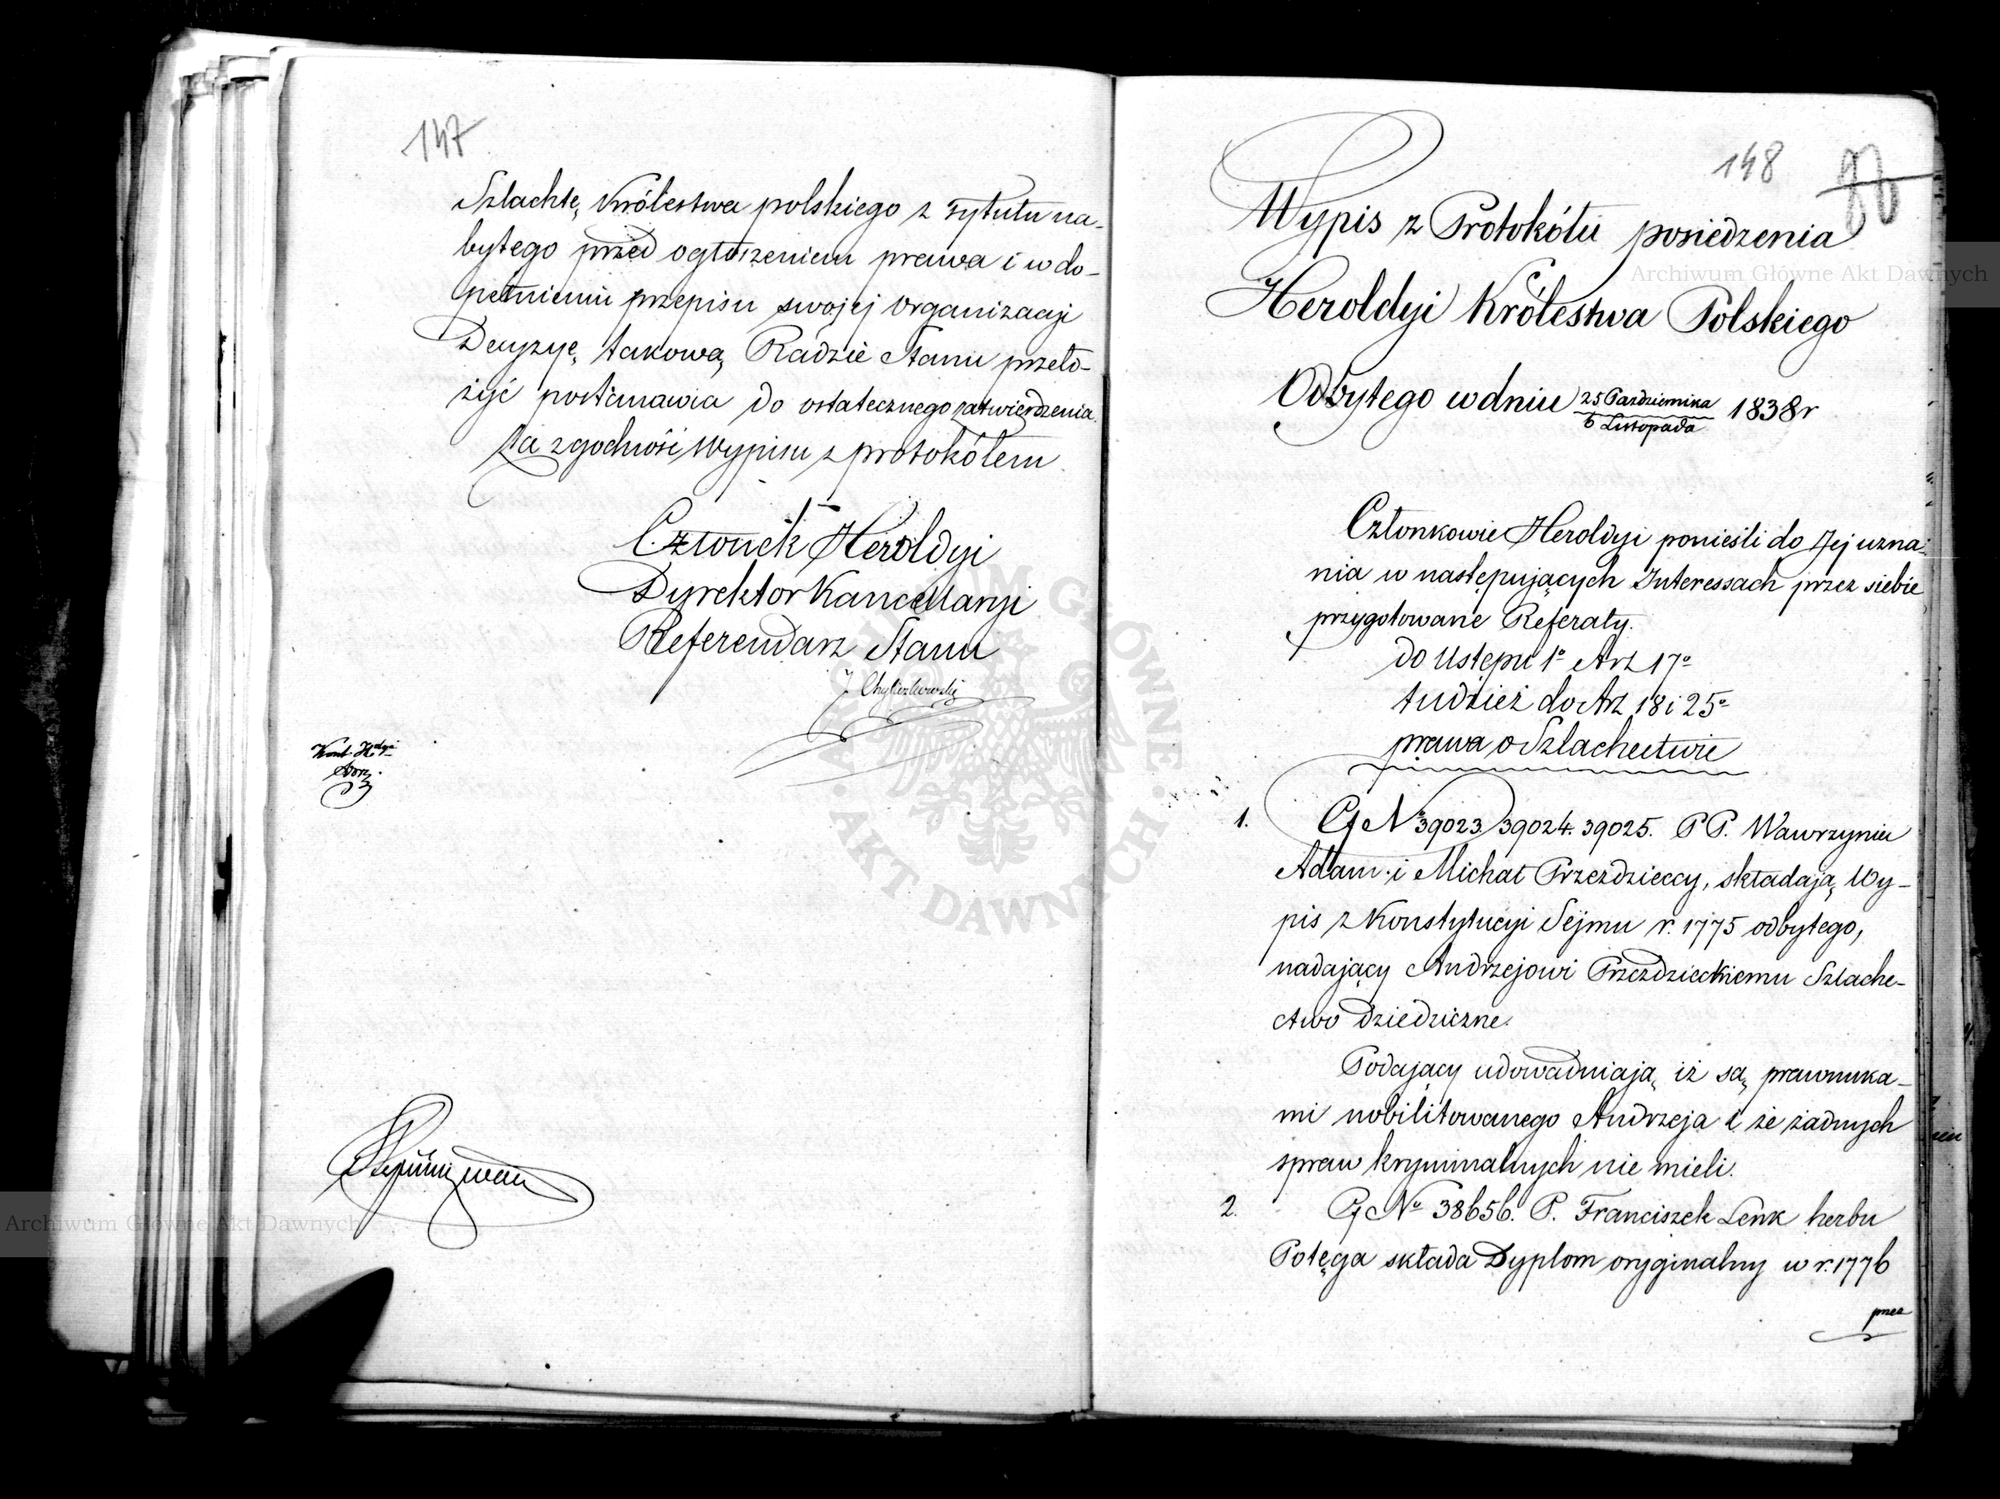 147
Szlachtę Królestwa polskiego z tytułu na-
bytego przed ogłoszeniem prawa i w do-
pełnieniu przepisu swojej Organizacji
Decyzyę takową Radzie Stanu przeło-
żyć postanawia do ostatecznego zatwierdzenia.
Za zgodność Wypisu z protokółem
Członek Heroldyi
Dyrektor Kancellaryi
Referendarz Stanu
148
Wypis z Protokółu posiedzenia
Heroldyi Królestwa Polskiego
Odbytego w dniu 25 Października / 6 Listopada 1838 r
Członkowie Heroldyi ponieśli do Jej uzna-
nia w następujących Interessach przez siebie
przygotowane Referaty.
do Ustępu 1º Art 17º
tudzież do Art 18 i 25º
prawa o Szlachectwie
1. Cf Nº 39023 39024. 39025. P P. Wawrzyniec
Adam i Michał Przezdzieccy, składają Wy-
pis z Konstytucyi Sejmu r. 1775 odbytego,
nadający Andrzejowi Przezdzieckiemu Szlache-
ctwo dziedziczne.
Podający udowadniają iż są prawnuka-
mi nobilitowanego Andrzeja i że żadnych
spraw kryminalnych nie mieli.
2. Cf Nº 38656. P. Franciszek Lenk herbu
Potęga składa Dyplom oryginalny w r. 1776
przez
Archiwum Główne Akt Dawnych
Archiwum Główne Akt Dawnych
ARCHIWUM GŁÓWNE
AKT DAWNYCH